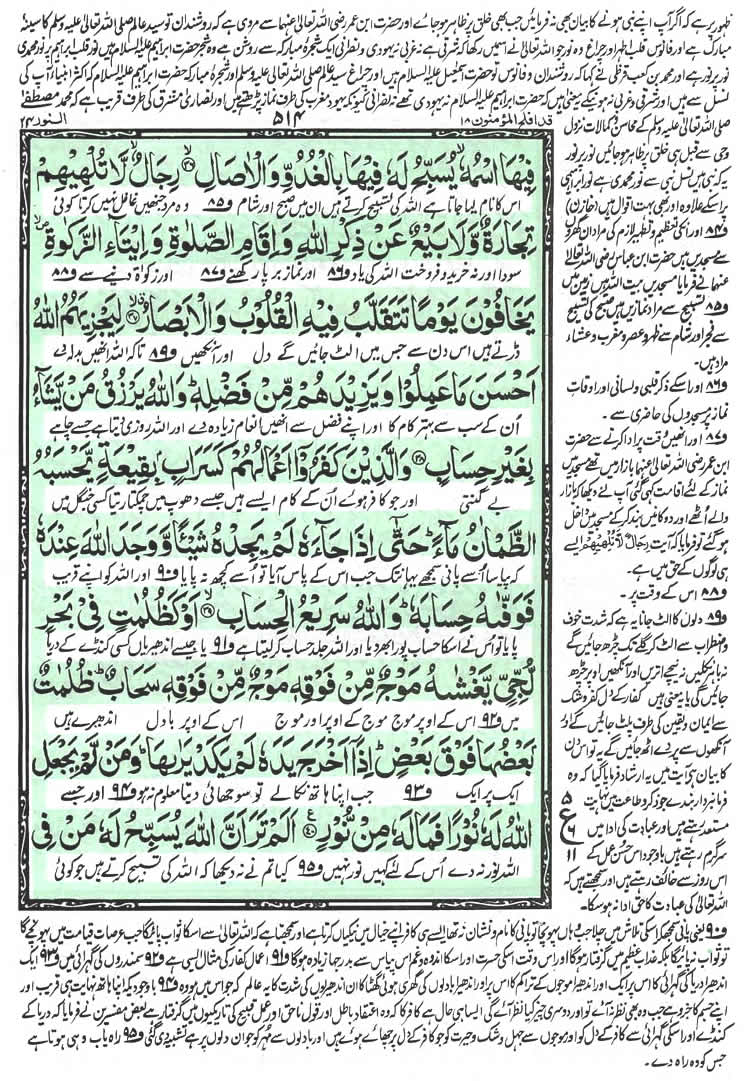 ظہور پر ہے کہ اگر آپ اپنے نبی ہونے کا بیان بھی نہ فرمائیں جب بھی خلق پر ظاہر ہو جائے اور حضرت ابن عمر رضی اللہ تعالیٰ عنہما سے مروی ہے کہ روشندان تو سید عالم صلی اللہ تعالیٰ علیہ وسلم کا سینۂ
مبارک ہے اور فانوس قلب اطہر اور چراغ وہ نور جو اللہ تعالیٰ نے اس میں رکھا کہ شرقی ہے نہ غربی نہ یہودی و نصرانی ایک شجرۂ مبارکہ سے روشن ہے وہ شجر حضرت ابراہیم علیہ السلام ہیں نور قلب ابراہیم پر نور محمدی
نور پر نور ہے اور محمد بن کعب قرظی نے کہا کہ روشندان و فانوس تو حضرت اسمٰعیل علیہ السلام ہیں اور چراغ سید عالم صلی اللہ تعالیٰ علیہ وسلم اور شجرۂ مبارکہ حضرت ابراہیم علیہ السلام کہ اکثر انبیاء آپ کی
نسل سے ہیں اور شرقی و غربی نہ ہونے کے یہ معنی ہیں کہ حضرت ابراہیم علیہ السلام نہ یہودی تھے نہ نصرانی کیونکہ یہود مغرب کی طرف نماز پڑھتے ہیں اور نصاریٰ مشرق کی طرف قریب ہے کہ محمد مصطفےٰ
صلی اللہ تعالیٰ علیہ وسلم کے محاسن و کمالات نزول
وحی سے قبل ہی خلق پر ظاہر ہو جائیں نور پر نور
یہ کہ نبی ہیں نسل نبی سے نور محمدی ہے نور ابراہیمی
پر اسکے علاوہ اور بھی بہت اقوال ہیں (خازن)
قد افلح المؤمنون ۱۸
۵۱۴
النور ۲۴
فِيْهَا اسْمُهٗ ۙ يُسَبِّحُ لَهٗ فِيْهَا بِالْغُدُوِّ وَالْاٰصَالِ ۙ﴿۳۶﴾ رِجَالٌ ۙ لَّا تُلْهِيْهِمْ
اس کا نام لیا جاتا ہے اللہ کی تسبیح کرتے ہیں ان میں صبح اور شام و۸۵ وہ مرد جنھیں غافل نہیں کرتا کوئی
تِجَارَةٌ وَّلَا بَيْعٌ عَنْ ذِكْرِ اللّٰهِ وَاِقَامِ الصَّلٰوةِ وَاِيْتَآءِ الزَّكٰوةِ ۙ
سودا اور نہ خرید و فروخت اللہ کی یاد و۸۶ اور نماز برپا رکھنے و۸۷ اور زکوٰة دینے سے و۸۸
يَخَافُوْنَ يَوْمًا تَتَقَلَّبُ فِيْهِ الْقُلُوْبُ وَالْاَبْصَارُ ۙ﴿۳۷﴾ لِيَجْزِيَهُمُ اللّٰهُ
ڈرتے ہیں اس دن سے جس میں الٹ جائیں گے دل اور آنکھیں و۸۹ تاکہ اللہ انھیں بدلہ دے
اَحْسَنَ مَا عَمِلُوْا وَيَزِيْدَهُمْ مِّنْ فَضْلِهٖ ؕ وَاللّٰهُ يَرْزُقُ مَنْ يَّشَآءُ
اُن کے سب سے بہتر کام کا اور اپنے فضل سے انھیں انعام زیادہ دے اور اللہ روزی دیتا ہے جسے چاہے
بِغَيْرِ حِسَابٍ ﴿۳۸﴾ وَالَّذِيْنَ كَفَرُوْۤا اَعْمَالُهُمْ كَسَرَابٍۭ بِقِيْعَةٍ يَّحْسَبُهُ
بے گنتی اور جو کافر ہوئے اُن کے کام ایسے ہیں جیسے دھوپ میں چمکتا ریتا کسی جنگل میں
الظَّمْاٰنُ مَآءً ؕ حَتّٰۤى اِذَا جَآءَهٗ لَمْ يَجِدْهُ شَيْـًٔا وَّ وَجَدَ اللّٰهَ عِنْدَهٗ
کہ پیاسا اُسے پانی سمجھے یہانتک جب اس کے پاس آیا تو اُسے کچھ نہ پایا و۹۰ اور اللہ کو اپنے قریب
فَوَفّٰىهُ حِسَابَهٗ ؕ وَاللّٰهُ سَرِيْعُ الْحِسَابِ ۙ﴿۳۹﴾ اَوْ كَظُلُمٰتٍ فِيْ بَحْرٍ
پایا تو اُس نے اسکا حساب پورا بھر دیا اور اللہ جلد حساب کر لیتا ہے و۹۱ یا جیسے اندھیریاں کسی کنڈے کے دریا
لُّجِّيٍّ يَّغْشٰىهُ مَوْجٌ مِّنْ فَوْقِهٖ مَوْجٌ مِّنْ فَوْقِهٖ سَحَابٌ ؕ ظُلُمٰتٌۢ
میں و۹۲ اس کے اوپر موج موج کے اوپر اور موج اس کے اوپر بادل اندھیرے ہیں
بَعْضُهَا فَوْقَ بَعْضٍ ؕ اِذَاۤ اَخْرَجَ يَدَهٗ لَمْ يَكَدْ يَرٰىهَا ؕ وَمَنْ لَّمْ يَجْعَلِ
ایک پر ایک و۹۳ جب اپنا ہاتھ نکالے تو سوجھائی دیتا معلوم نہ ہو و۹۴ اور جسے
اللّٰهُ لَهٗ نُوْرًا فَمَا لَهٗ مِنْ نُّوْرٍ ﴿۴۰﴾ اَلَمْ تَرَ اَنَّ اللّٰهَ يُسَبِّحُ لَهٗ مَنْ فِي
اللہ نور نہ دے اُس کے لئے کہیں نور نہیں و۹۵ کیا تم نے نہ دیکھا کہ اللہ کی تسبیح کرتے ہیں جو کوئی
و۸۴ اور انکی تعظیم و تطہیر لازم کی مراد ان گھروں
سے مسجدیں ہیں حضرت ابن عباس رضی اللہ تعالیٰ
عنہما نے فرمایا مسجدیں بیت اللہ ہیں زمین میں
و۸۵ تسبیح سے مراد نمازیں ہیں صبح کی تسبیح
سے فجر اور شام سے ظہر و عصر و مغرب و عشاء
مراد ہیں۔
و۸۶ اور اسکے ذکر قلبی و لسانی اور اوقات
نماز پر مسجدوں کی حاضری سے۔
و۸۷ اور انھیں وقت پر ادا کرنے سے حضرت
ابن عمر رضی اللہ تعالیٰ عنہما بازار میں تھے مسجد میں
نماز کے لئے اقامت کہی گئی آپ نے دیکھا کہ بازار
والے اُٹھے اور دوکانیں بند کر کے مسجد میں داخل
ہو گئے تو فرمایا کہ آیت رِجَالٌ لَّا تُلْهِيْهِمْ ایسے
ہی لوگوں کے حق میں ہے۔
و۸۸ اس کے وقت پر۔
و۸۹ دلوں کا الٹ جانا یہ ہے کہ شدت خوف
و اضطراب سے الٹ کر گلے تک چڑھ جائیں گے
نہ باہر نکلیں نہ نیچے اتریں اور آنکھیں اوپر چڑھ
جائیں گی یا یہ معنی ہیں کفار کے دل کفر و شک
سے ایمان و یقین کی طرف پلٹ جائیں گے اور
آنکھوں سے پردے اٹھ جائیں گے یہ تو اس دن
کا بیان ہے آیت میں یہ ارشاد فرمایا گیا کہ وہ
فرمانبردار بندے جو ذکر و طاعت میں نہایت
مستعد رہتے ہیں اور عبادت کی ادا میں
سرگرم رہتے ہیں باوجود اس حسن عمل کے
اس روز سے خائف رہتے ہیں اور سمجھتے ہیں کہ
اللہ تعالیٰ کی عبادت کا حق ادا نہ ہو سکا۔
۵
ع
۶
۱۱
و۹۰ یعنی پانی سمجھ کر اسکی تلاش میں چلا جب وہاں پہونچا تو پانی کا نام و نشان نہ تھا ایسے ہی کافر اپنے خیال میں نیکیاں کرتا ہے اور سمجھتا ہے کہ اللہ تعالیٰ سے اسکا ثواب پائیگا جب عرصات قیامت میں پہونچے گا
تو ثواب نہ پائیگا بلکہ عذاب عظیم میں گرفتار ہوگا اور اس وقت اسکی حسرت اور اسکا اندوہ و غم اس پیاس سے بدرجہا زیادہ ہوگا و۹۱ اعمال کفار کی مثال ایسی ہے و۹۲ سمندروں کی گہرائی میں و۹۳ ایک
اندھیرا دریا کی گہرائی کا اس پر ایک اور اندھیرا موجوں کے تراکم کا اس پر اور اندھیرا بادلوں کی گھری ہوئی گھٹا کا ان اندھیریوں کی شدت کا یہ عالم کہ جو اس میں ہو وہ و۹۴ باوجودیکہ اپنا ہاتھ نہایت ہی قریب اور
اپنے جسم کا جزو ہے جب وہ بھی نظر نہ آئے تو اور دوسری چیز کیا نظر آئے گی ایسا ہی حال ہے کافر کا کہ وہ اعتقاد باطل اور قول ناحق اور عمل قبیح کی تاریکیوں میں گرفتار ہے بعض مفسرین نے فرمایا کہ دریا کے
کنڈے اور اسکی گہرائی سے کافر کے دل کو اور موجوں سے جہل و شک و حیرت کو جو کافر کے دل پر چھائے ہوئے ہیں اور بادلوں سے مُہر کو جو ان دلوں پر ہے تشبیہ دی گئی و۹۵ راہ یاب وہی ہوتا ہے
جس کو وہ راہ دے۔